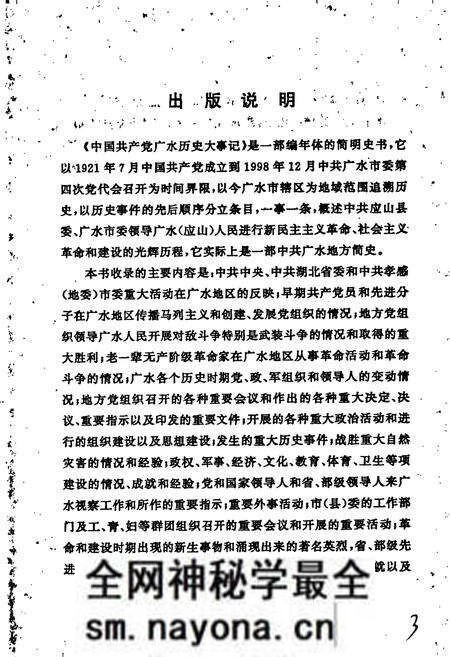 出版说明
《中国共产党广水历史大事记》是一部编年体的简明史书，它
以1921年7月中国共产党成立到1998年12月中共广水市委第
四次党代会召开为时间界限，以今广水市辖区为地域范围追溯历
史，以历史事件的先后顺序分立条目，一事一条，概述中共应山县
委、广水市委领导广水（应山）人民进行新民主主义革命、社会主义
革命和建设的光辉历程，它实际上是一部中共广水地方简史。
本书收录的主要内容是：中共中央、中共湖北省委和中共孝感
（地委）市委重大活动在广水地区的反映；早期共产党员和先进分
子在广水地区传播马列主义和创建、发展党组织的情况；地方党组
织领导广水人民开展对敌斗争特别是武装斗争的情况和取得的重
大胜利；老一辈无产阶级革命家在广水地区从事革命活动和革命
斗争的情况；广水各个历史时期党、政、军组织和领导人的变动情
况；地方党组织召开的各种重要会议和作出的各种重大决定、决
议、重要指示以及印发的重要文件；开展的各种重大政治活动和进
行的组织建设以及思想建设；发生的重大历史事件；战胜重大自然
灾害的情况和经验；政权、军事、经济、文化、教育、体育、卫生等项
建设的情况、成就和经验；党和国家领导人和省、部级领导人来广
水视察工作和所作的重要指示；重要外事活动；市（县）委的工作部
门及工、青、妇等群团组织召开的重要会议和开展的重要活动；革
命和建设时期出现的新生事物和涌现出来的著名英烈，省、部级先
进
就以及
全网神秘学最全
sm.nayona.cn
3